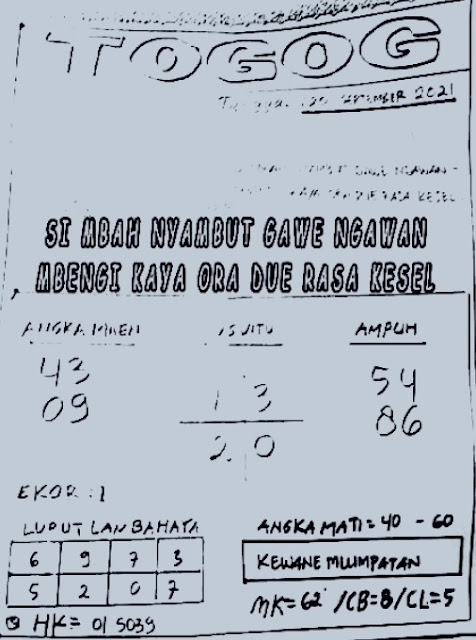 TOGOG
Tanggal : 20 SEPTEMBER 2021
GAWE NGAWAN
DUE RASA KESEL
SI MBAH NYAMBUT GAWE NGAWAN
MBENGI KAYA ORA DUE RASA KESEL
ANGKA MAEN AMPUH
43 54
09 1 3 86
2 0
EKOR : 1
LUPUT LAN BAHAYA ANGKA MATI = 40 - 60
6 9 7 3 KEWANE MLUMPATAN
5 2 0 7
MK= 62 /CB=8/CL=5
HK= 01 5039